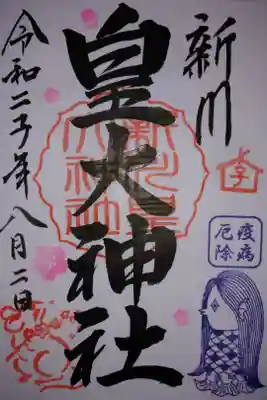 新川
皇大神社
令和二子年八月二日
新川皇
大神社
疫病
厄除